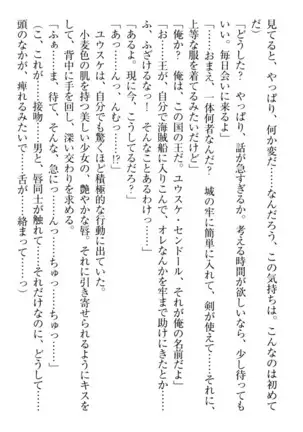 見てると、やっぱり、何か変だ……なんだろう、この気持ちは。こんなのは初めて
だ）
「どうした？　やっぱり、話が急すぎるか。考える時間が欲しいなら、少し待っても
いい。毎日会いに来るよ」
「……おまえ、一体何者なんだ？　城の牢に簡単に入れて、剣が使えて……それに、
上等な服を着てるみたいだけど」
「俺か？　俺は、この国の王だ。ユウスケ・センドール、それが俺の名前だよ」
「お……王が、自分で海賊船に入りこんで、オレなんかを牢まで助けにきたとか……
ふ、ふざけるなっ！　そんなことあるわけっ……」
「あるよ。現に今、こうしてるだろ？」
「あっ……んっ、んむっ……！？」
ユウスケは、自分でも驚くほど積極的な行動に出ていた。
小麦色の肌を持つ美しい少女の、艶やかな唇。それに引き寄せられるようにキスを
して、背中に手を回し、深い交わりを求める。
「ふぁ……ま、待て、そんな、急にっ……んっ……ちゅっ……ちゅっ……」
（こ、これが……接吻……男と、唇同士が触れて……それだけなのに、どうして……
頭のなかが、痺れるみたいで……舌が……絡まって……っ）